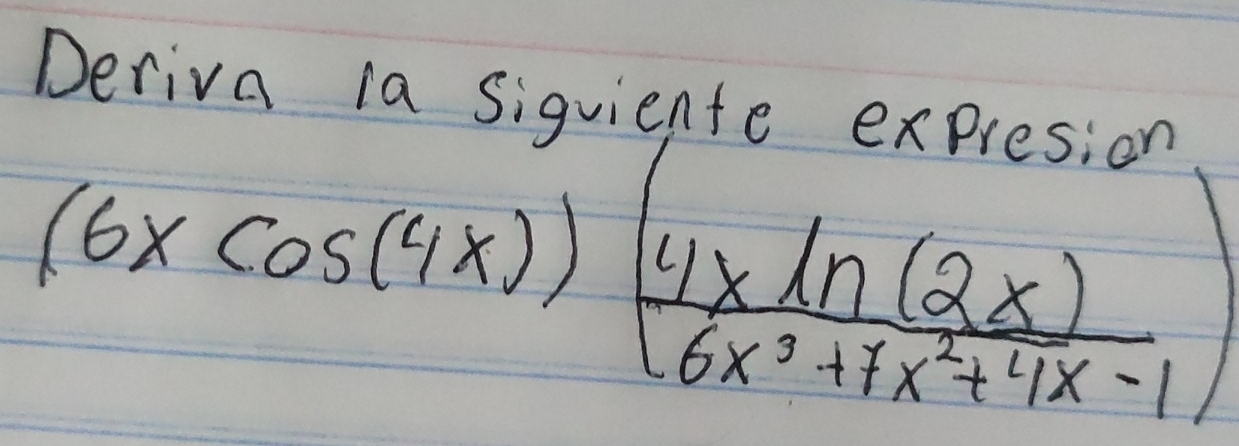 Deriva la siguiente expresion
(6x cos(4x)) (4x ln(2x) / 6x³+7x²+4x-1)